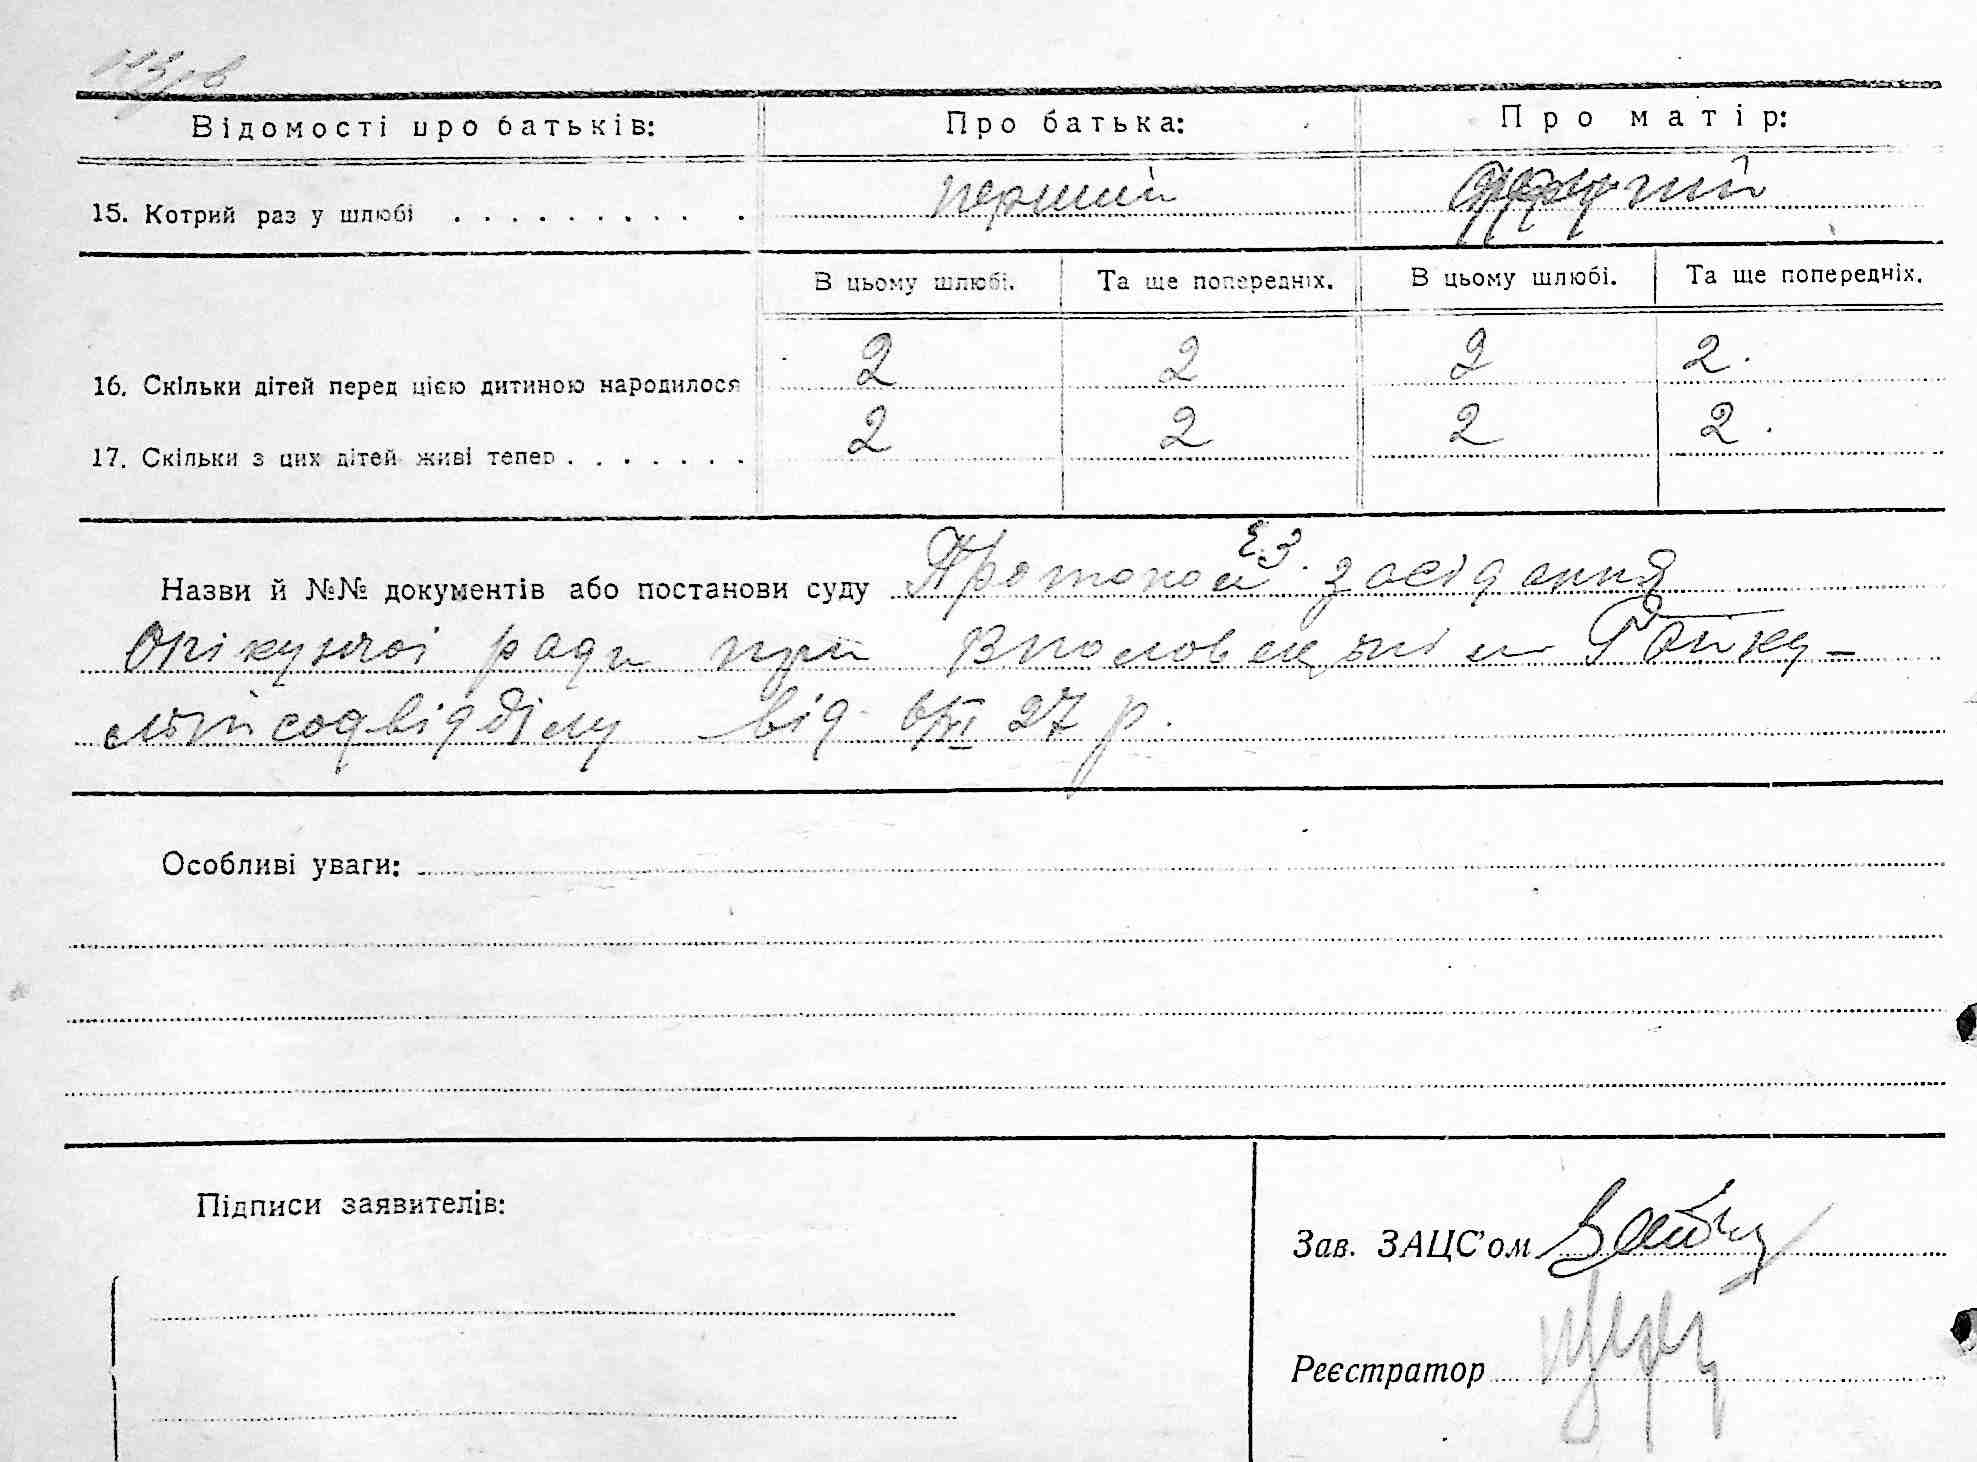 Відомості про батьків: Про батька: Про матір:
15. Котрий раз у шлюбі . . . . . . . . . . перший другий
В цьому шлюбі. Та ще попередніх. В цьому шлюбі. Та ще попередніх.
16. Скільки дітей перед цією дитиною народилося 2 2 2 2.
17. Скільки з цих дітей живі тепер . . . . . . . 2 2 2 2.
Назви й №№ документів або постанови суду Протокол засідання
Опікунчої ради при
від 27 р.
Особливі уваги:
Підписи заявителів:
Зав. ЗАЦС'ом
Реєстратор